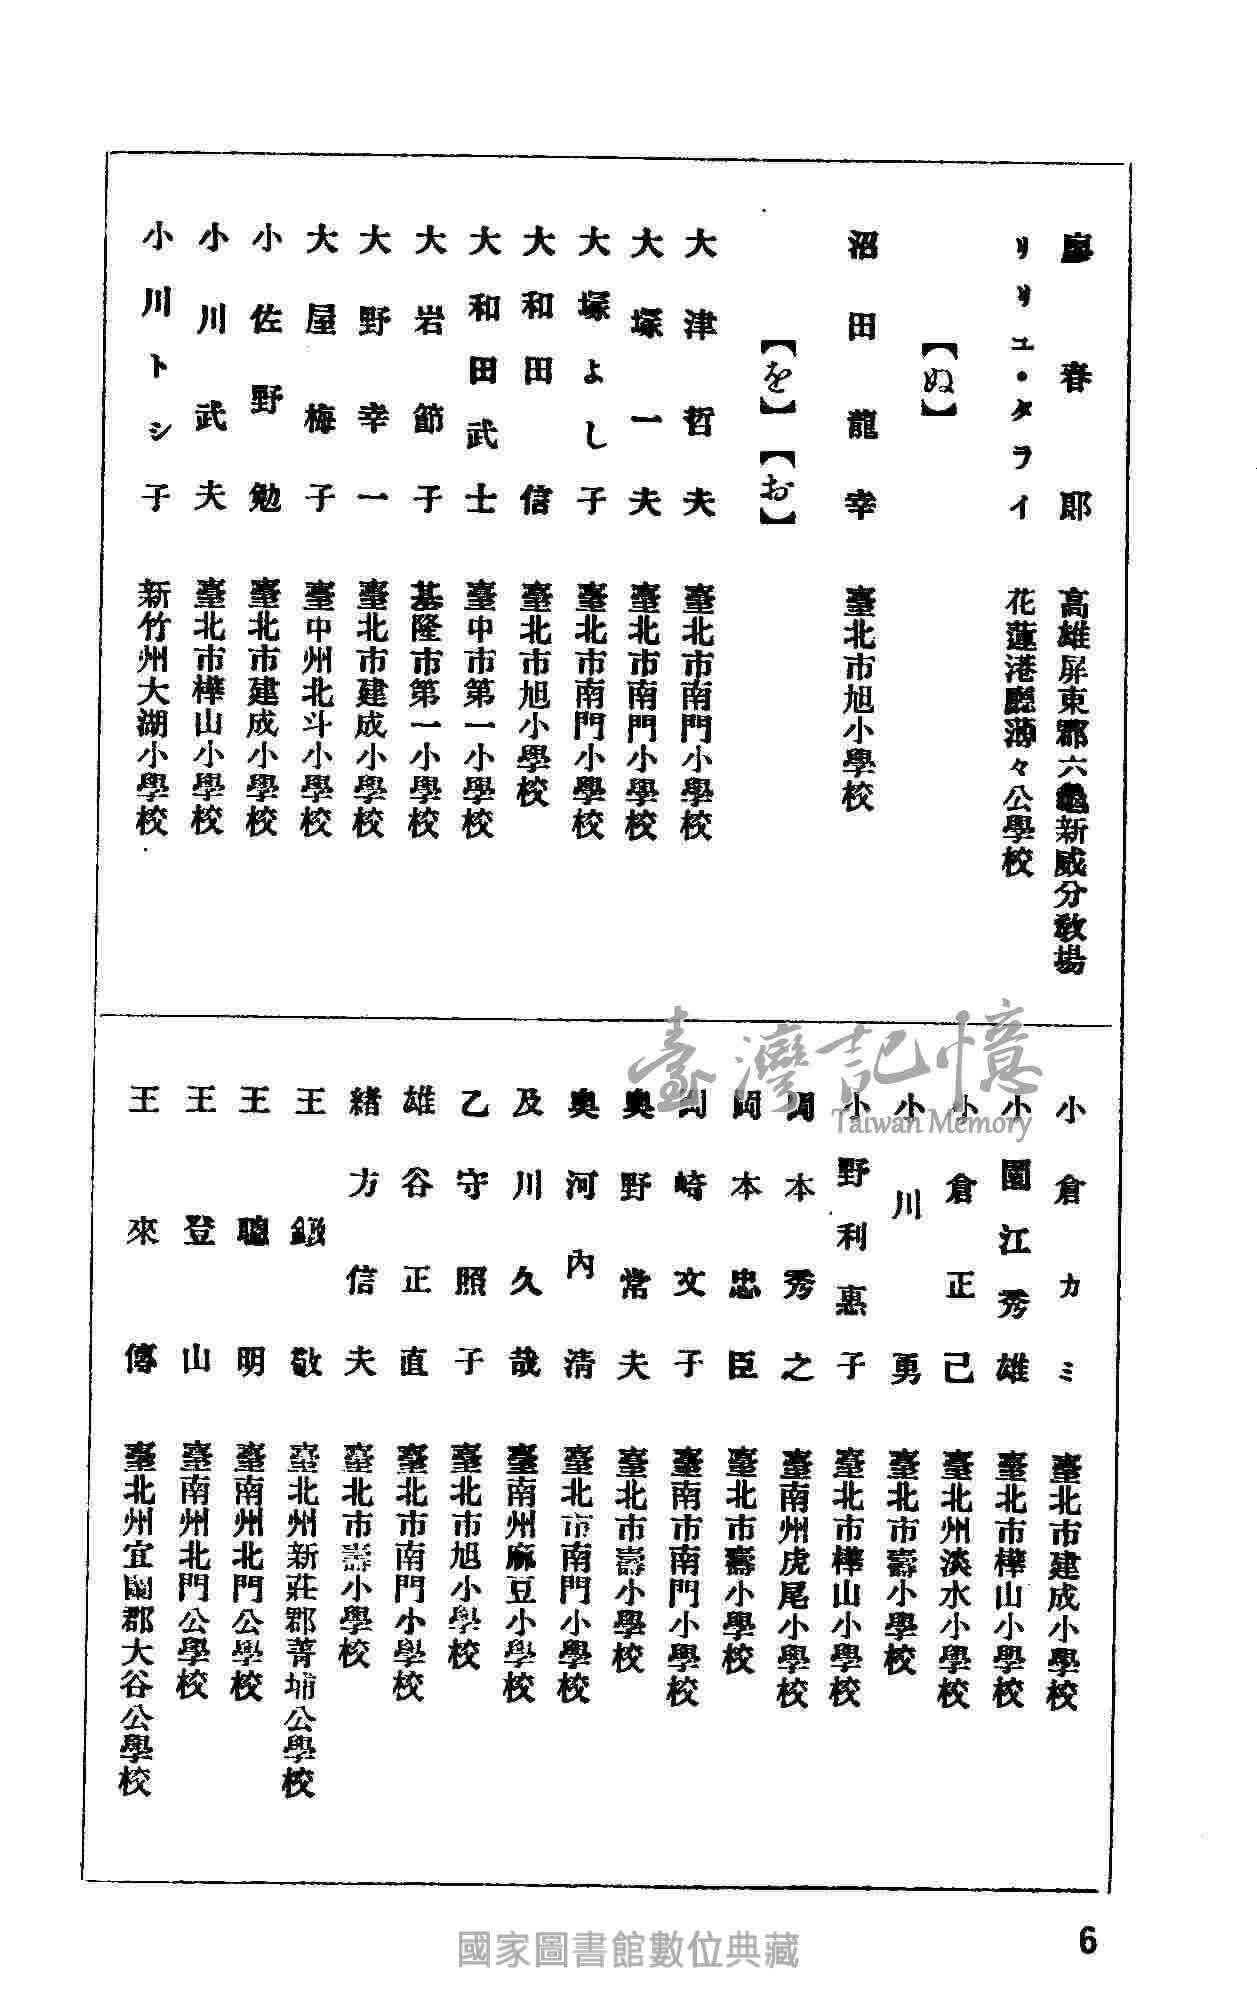 廖春郎　高雄屏東郡六龜新威分教場
リリユ・タライ　花蓮港廳薄々公學校
【ぬ】
沼田龍幸　臺北市旭小學校
【を】【お】
大津哲夫　臺北市南門小學校
大塚一夫　臺北市南門小學校
大塚よし子　臺北市南門小學校
大和田信　臺北市旭小學校
大和田武士　臺中市第一小學校
大岩節子　基隆市第一小學校
大野幸一　臺北市建成小學校
大屋梅子　臺中州北斗小學校
小佐野勉　臺北市建成小學校
小川武夫　臺北市樺山小學校
小川トシ子　新竹州大湖小學校
小倉カミ　臺北市建成小學校
小園江秀雄　臺北市樺山小學校
小倉正己　臺北州淡水小學校
小川勇　臺北市壽小學校
小野利惠子　臺北市樺山小學校
岡本秀之　臺南州虎尾小學校
岡本忠臣　臺北市壽小學校
岡崎文子　臺南市南門小學校
奧野常夫　臺北市壽小學校
奧河內清　臺北市南門小學校
及川久哉　臺南州麻豆小學校
乙守照子　臺北市旭小學校
雄谷正直　臺北市南門小學校
緒方信夫　臺北市壽小學校
王敬　臺北州新莊郡菁埔公學校
王聰明　臺南州北門公學校
王登山　臺南州北門公學校
王來傳　臺北州宜蘭郡大谷公學校
6
臺灣記憶
Taiwan Memory
國家圖書館數位典藏